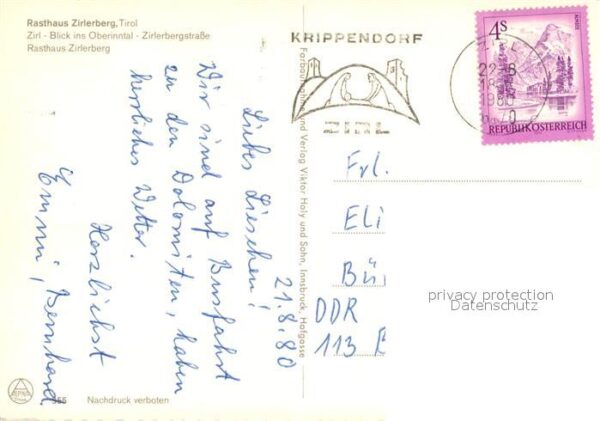 Rasthaus Zirlerberg, Tirol
Zirl - Blick ins Oberinntal - Zirlerbergstraße
Rasthaus Zirlerberg
KRIPPENDORF
ZIRL
4S
ALMSEE
REPUBLIK ÖSTERREICH
22.-8
18
6170
Farbaufnahme und Verlag Viktor Holy und Sohn, Innsbruck, Hofgasse
21.8.80
Liebes Lieschen!
Wir sind auf Busfahrt
zu den Dolomiten, haben
herrliches Wetter.
Herzlichst
Emmi, Bernhard.
Frl.
Eli
Bü
DDR
113
privacy protection
Datenschutz
ALPINA
Druck
355
Nachdruck verboten